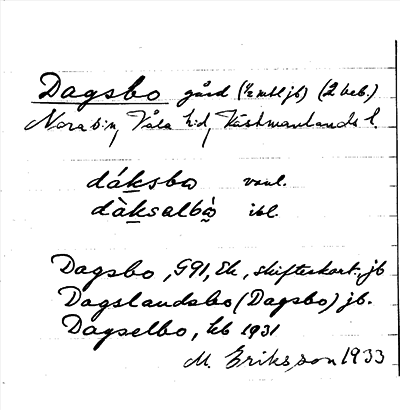 Dagsbo gård (½ mtl jb) (2 beb.)
Nora sn, Våla hd, Västmanlands l.
dáksbo vanl.
dàksalbò ibl.
Dagsbo, G91, Ek, skifteskart., jb
Dagslandsbo (Dagsbo) jb.
Dagselbo, kb 1931
M. Eriksson 1933